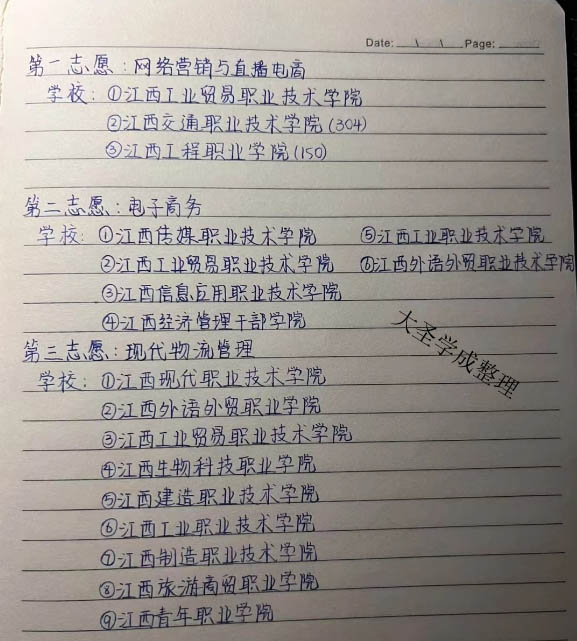 Date: \ \ Page:
第一志愿:网络营销与直播电商
学校:①江西工业贸易职业技术学院
②江西交通职业技术学院(304)
③江西工程职业学院(150)
第二志愿:电子商务
学校:①江西传媒职业技术学院 ⑤江西工业职业技术学院
②江西工业贸易职业技术学院 ⑥江西外语外贸职业技术学院
③江西信息应用职业技术学院
④江西经济管理干部学院
第三志愿:现代物流管理
学校:①江西现代职业技术学院
②江西外语外贸职业学院
③江西工业贸易职业技术学院
④江西生物科技职业学院
⑤江西建造职业技术学院
⑥江西工业职业技术学院
⑦江西制造职业技术学院
⑧江西旅游商贸职业学院
⑨江西青年职业学院
大圣学成整理